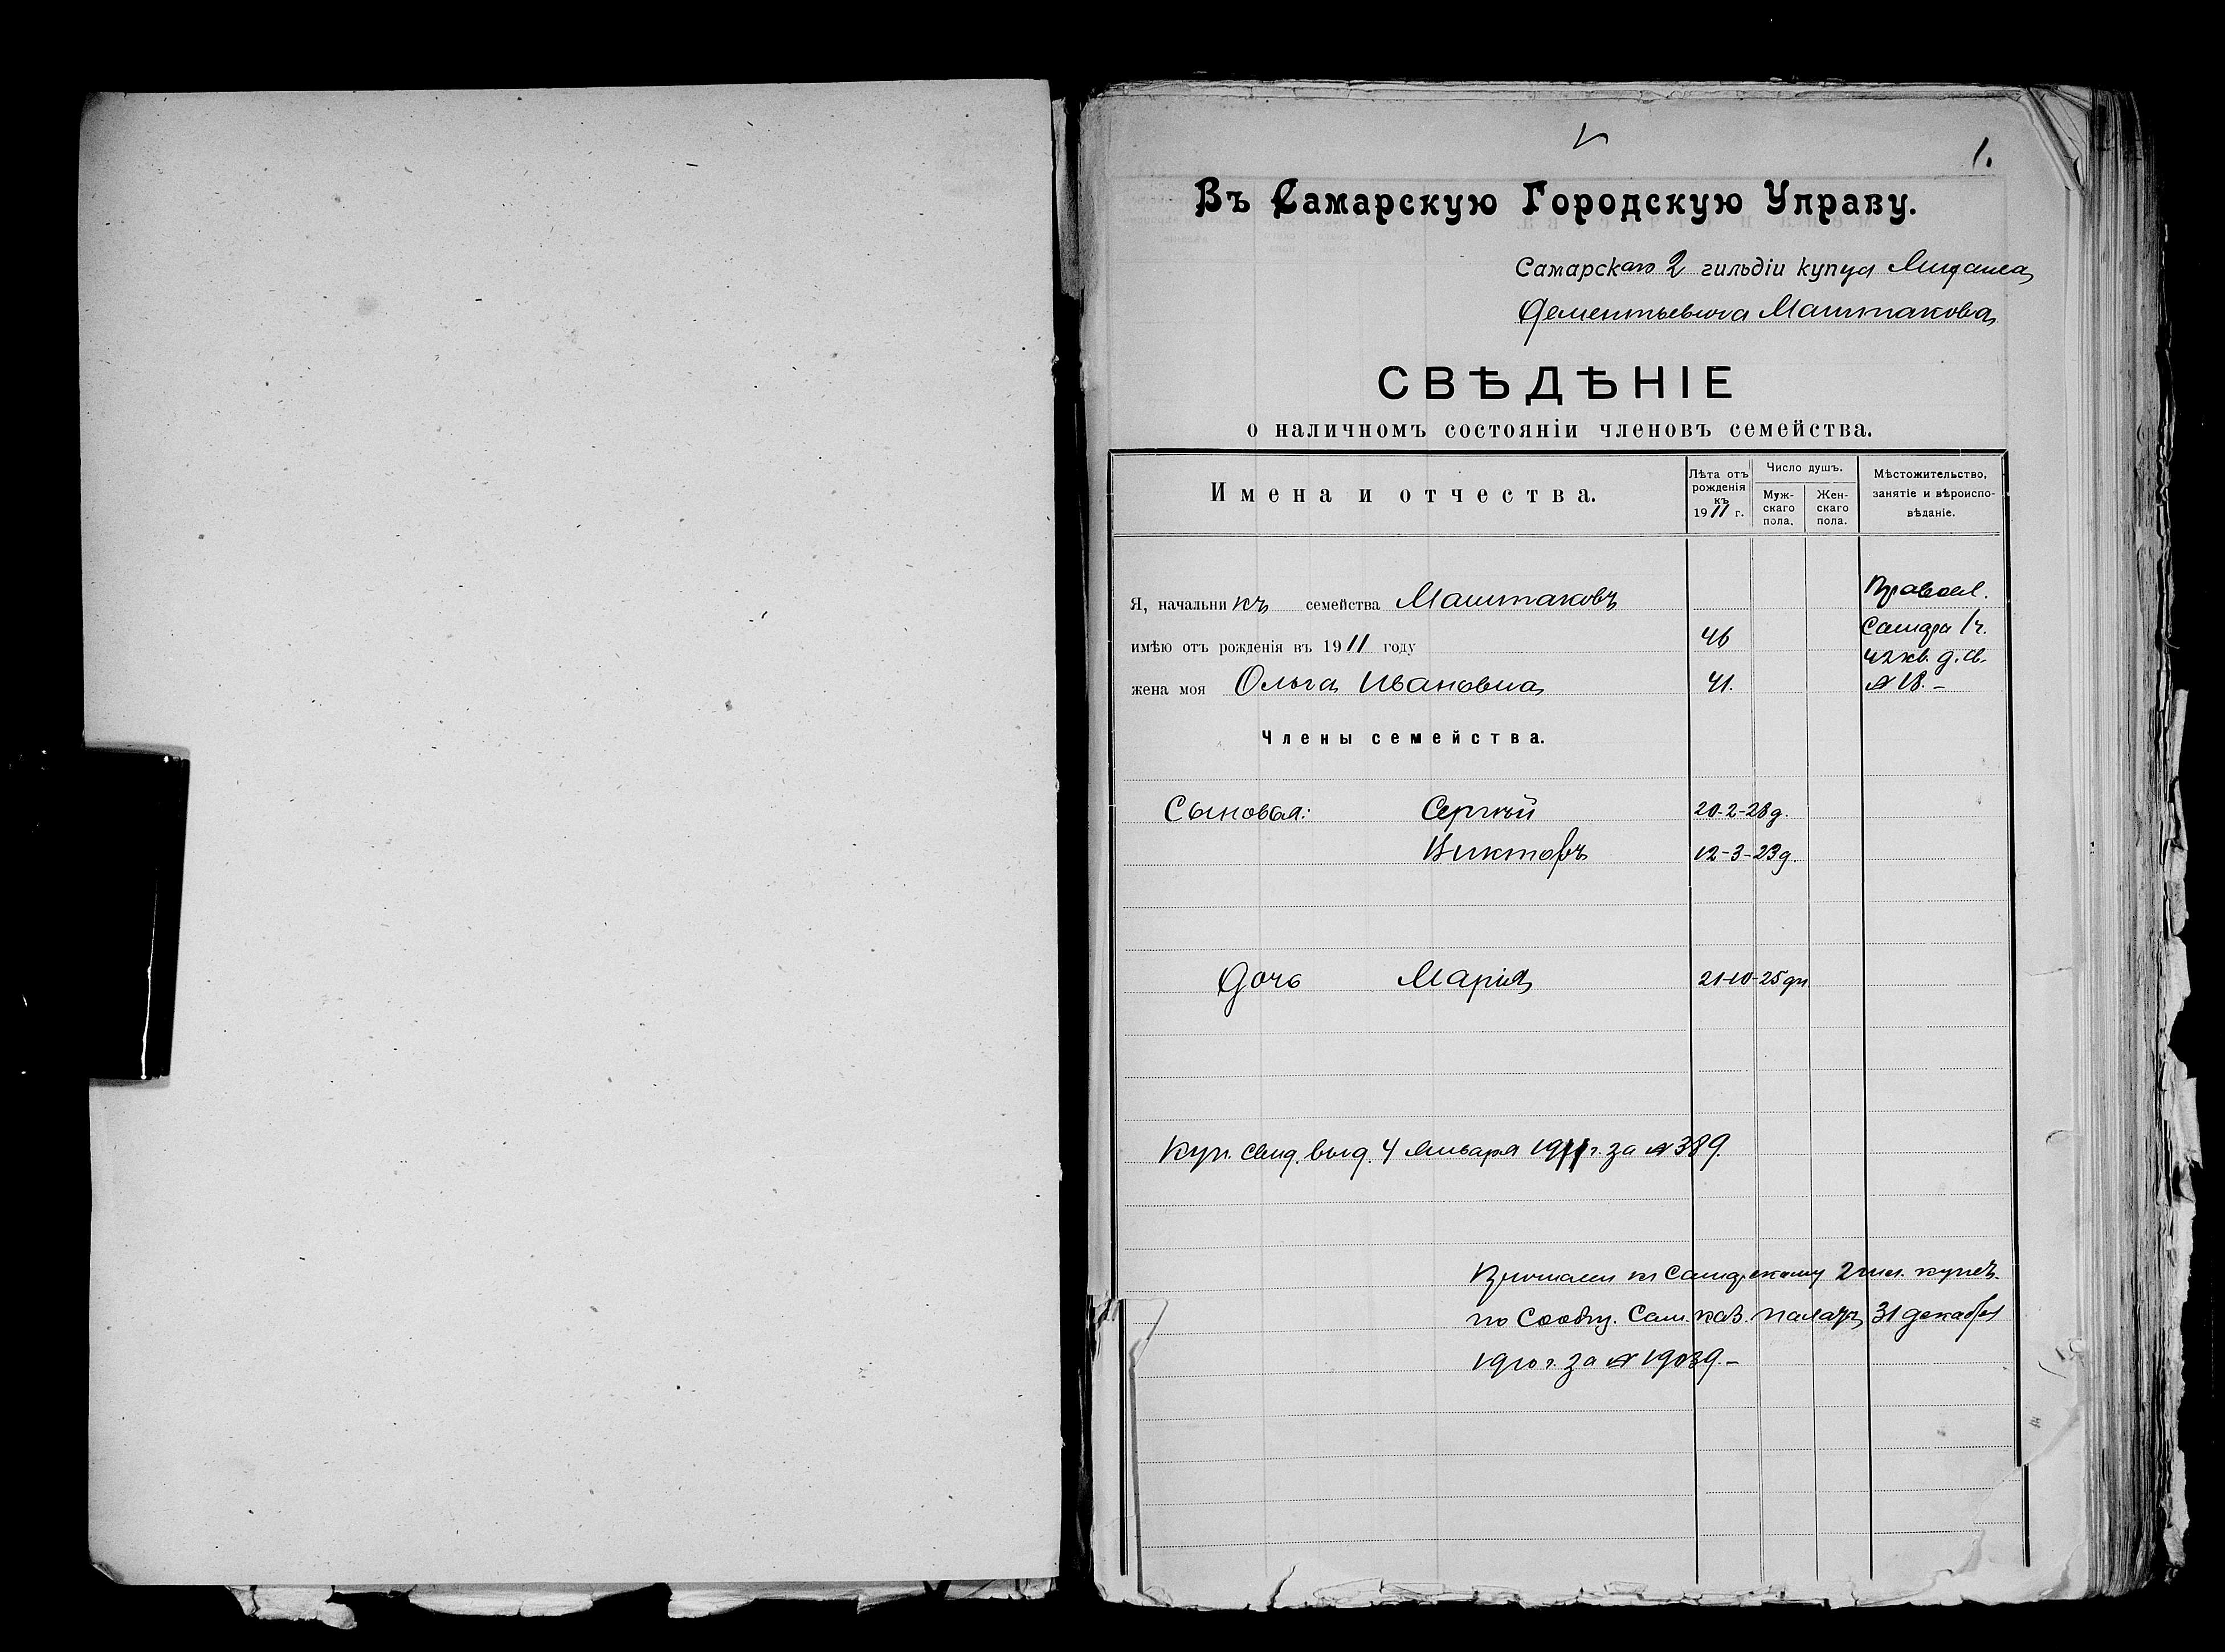 1.
Въ Самарскую Городскую Управу.
Самарскаго 2 гильдіи купца Михаила
Дементьевича Маштакова
СВѢДѢНІЕ
о наличномъ состояніи членовъ семейства.
Имена и отчества.
Лѣта отъ рожденія къ 1911 г.
Число душъ.
Мужскаго пола.
Женскаго пола.
Мѣстожительство, занятіе и вѣроисповѣданіе.
Я, начальникъ семейства Маштаковъ Правосл.
имѣю отъ рожденія въ 1911 году 46 Самара 1 ч.
42 кв. д. №
жена моя Ольга Ивановна 41. № 18.-
Члены семейства.
Сыновья: Сергѣй 20-2-28 д.
Викторъ 12-3-23 д.
Дочь Марія 21-10-25 дн.
Куп. свид. выд. 4 Января 1911 г. за № 389
къ Самарскому 2 гил. купеч.
по Сообщ. Сам. каз. палаты 31 декабря
1910 г. за № 19039.-